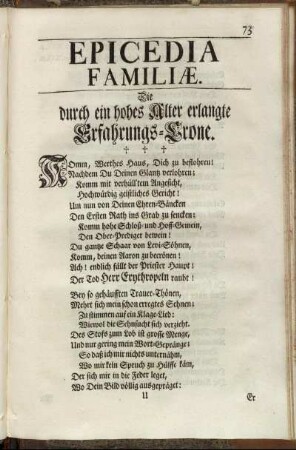 73
EPICEDIA
FAMILIÆ.
Die
durch ein hohes Alter erlangte
Erfahrungs-Crone.
† † †
Komm, Werthes Haus, Dich zu beflohren:
Nachdem Du Deinen Glantz verlohren;
Komm mit verhülltem Angesicht,
Hochwürdig geistliches Gericht!
Um nun von Deinen Ehren-Bäncken
Den Ersten Rath ins Grab zu sencken:
Komm hohe Schloß- und Hoff-Gemein,
Den Ober-Prediger bewein!
Du gantze Schaar von Levi-Söhnen,
Komm, deinen Aaron zu beerönen!
Ach! endlich fällt der Priester Haupt:
Der Tod Herr Erythropeln raubt!
Bey so gehäufften Trauer-Thönen,
Mehrt sich mein schon erregtes Sehnen:
Zu stimmen auf ein Klage-Lied:
Wiewol die Sehnsucht sich verzieht.
Des Stoffs zum Lob ist grosse Menge,
Und nur gering mein Wort-Gepränge:
So daß ich mir nichts unternähm,
Wo mir kein Spruch zu Hülffe käm,
Der sich mir in die Feder leget,
Wo Dein Bild völlig ausgepräget:
U
Er